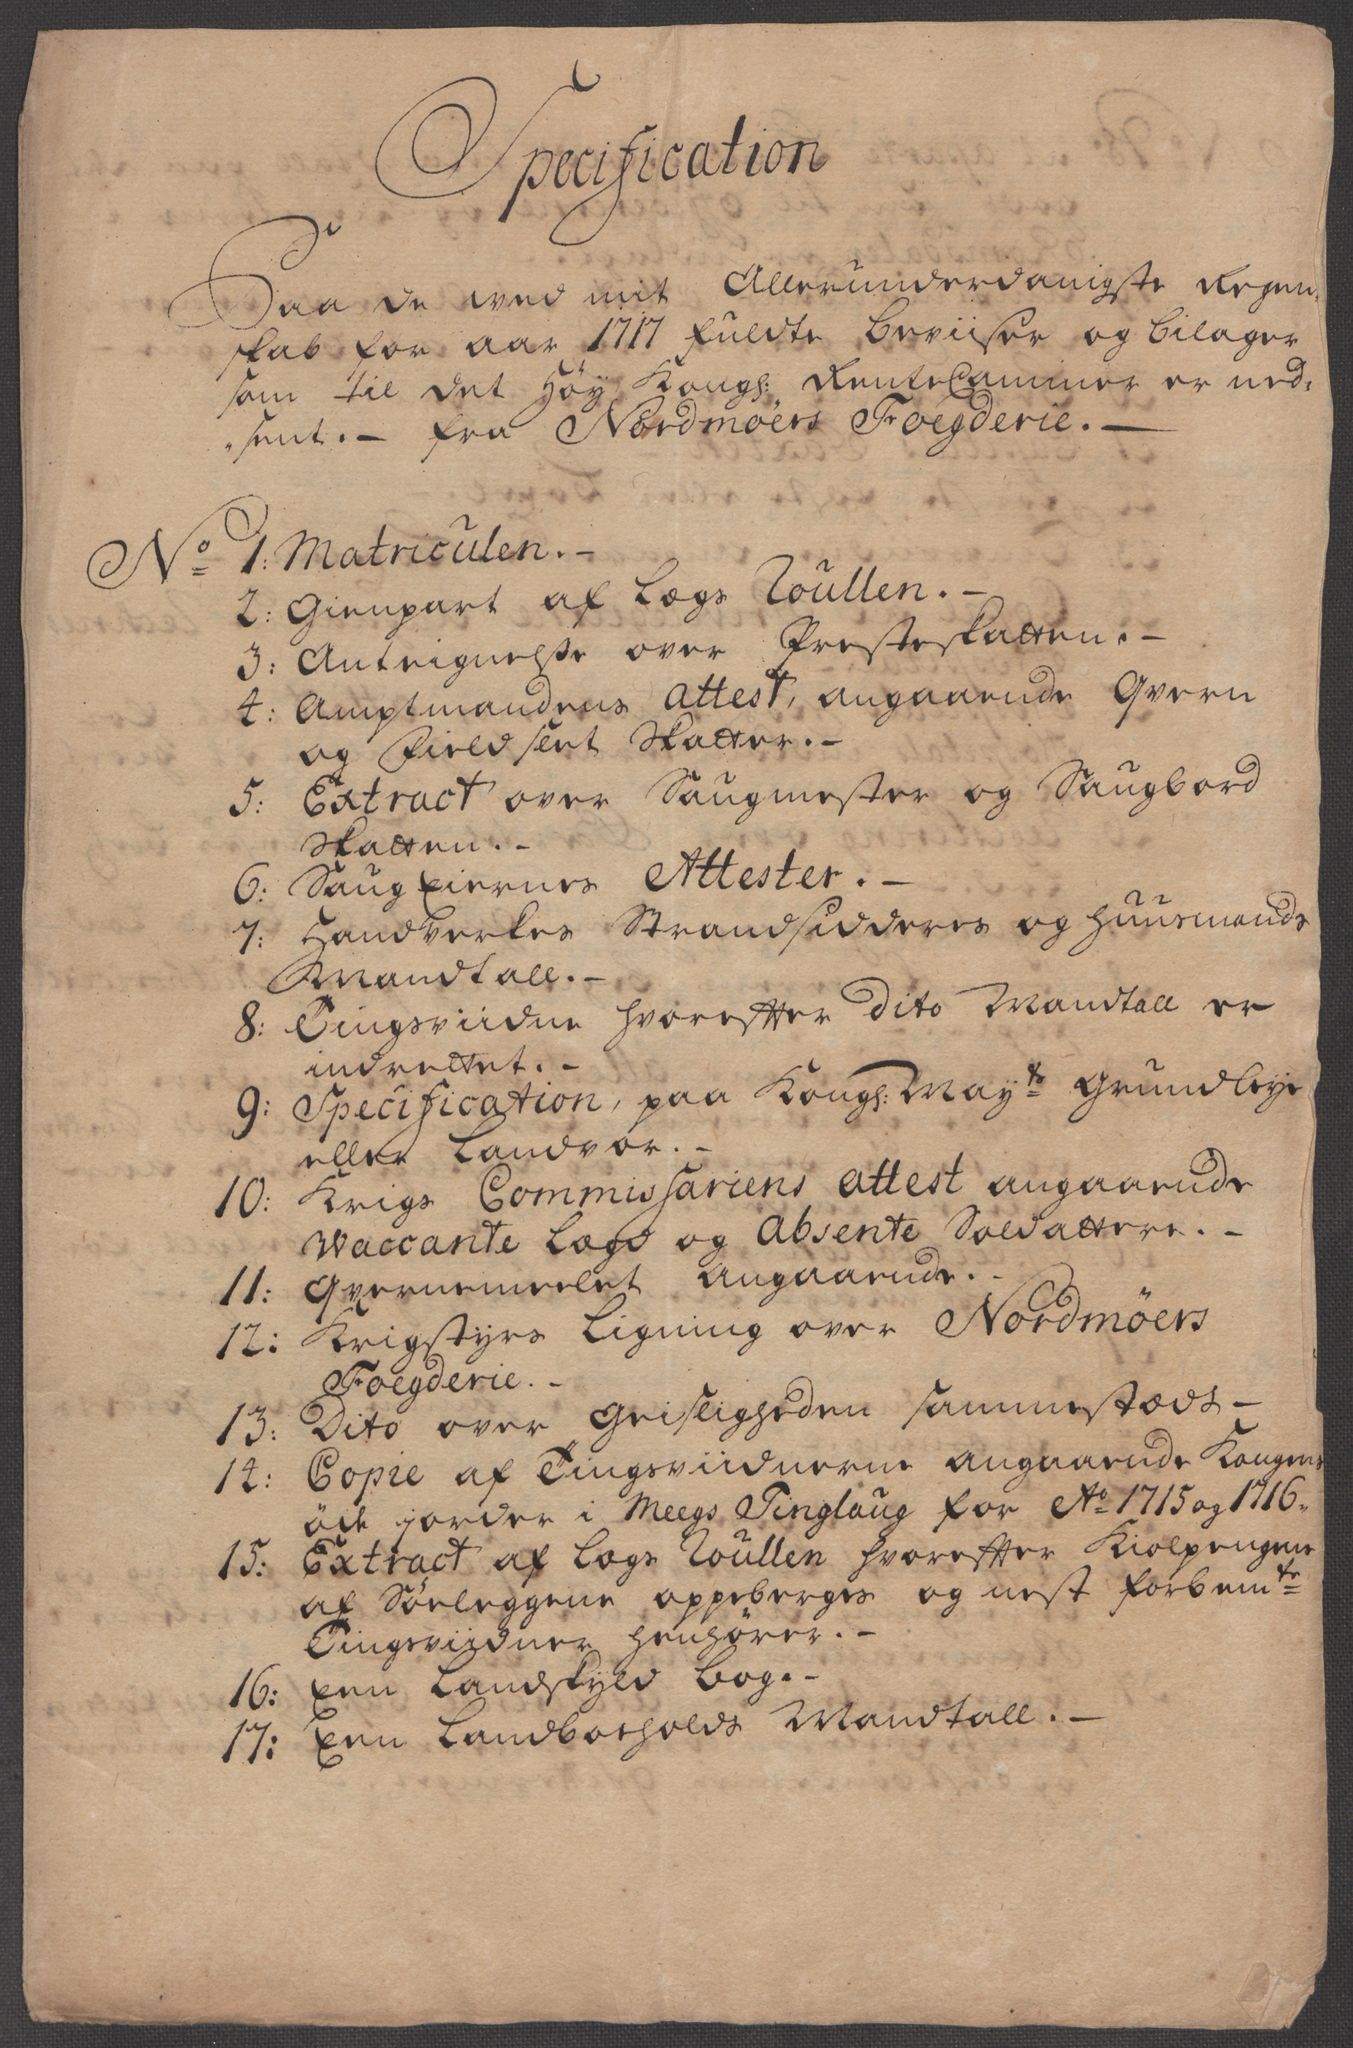 Specification
Paa de wed mit Allerunderdanigste Regen,
skab for aar 1717 fuldte Beviiser og bilager
som til det Höy Kongl: RenteCammer er ned,
sent. - fra Nordmöers Foegderie. -
No 1: Matriculen. -
2: Gienpart af Lægs Roullen. -
3: Anteignelse over Presteskatten. -
4: Amptmandens Attest, angaaende Qvern
og Fieldslet Skatter. -
5: Extract over Saugmester og Saugbord
Skatten. -
6: Saug Eiernes Attester. -
7: Handverkes Strandsidderes og Huusmands
Mandtall. -
8: Tingsviidne hvorefter Dito Mandtall er
indrettet. -
9: Specification, paa Kongl: Mayts Grundleye
eller Landvor. -
10: Krigs Commissariens attest angaaende
Waccante Lægd og Absente Soldattere. -
11: Qvernemeelet angaaende. -
12: Krigstyrs Ligning over Nordmöers
Foegderie. -
13: Dito over Geistligheden sammestæds -
14: Copie af Tingsviidnerne angaaende Kongens
öde jorder i Meegs Tinglaug for Ao 1715 og 1716.
15: Extract af Lægs Roullen hvorefter Kiolpengene
af Söeleggene oppeberges og nest forbemte
Tingsviidner henhörer. -
16: Een Landskyld bog. -
17: Een Landboeholds Mandtall. -